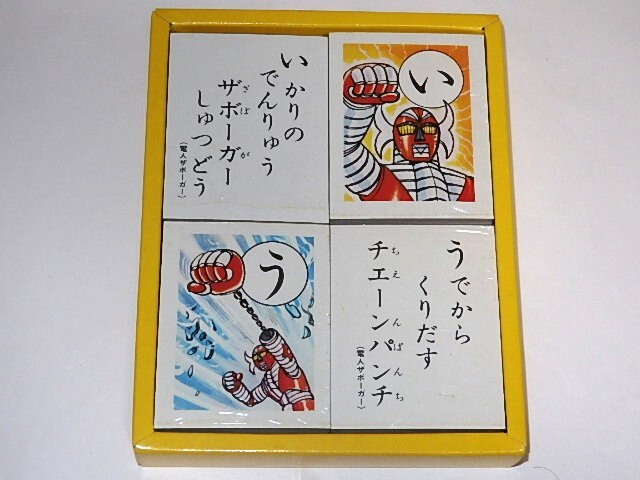 いかりの
でんりゅう
ザボーガー
ざぼが
しゅつどう
(電人ザボーガー)
い
う
うでから
くりだす
チエーンパンチ
ちえんぱんち
(電人ザボーガー)